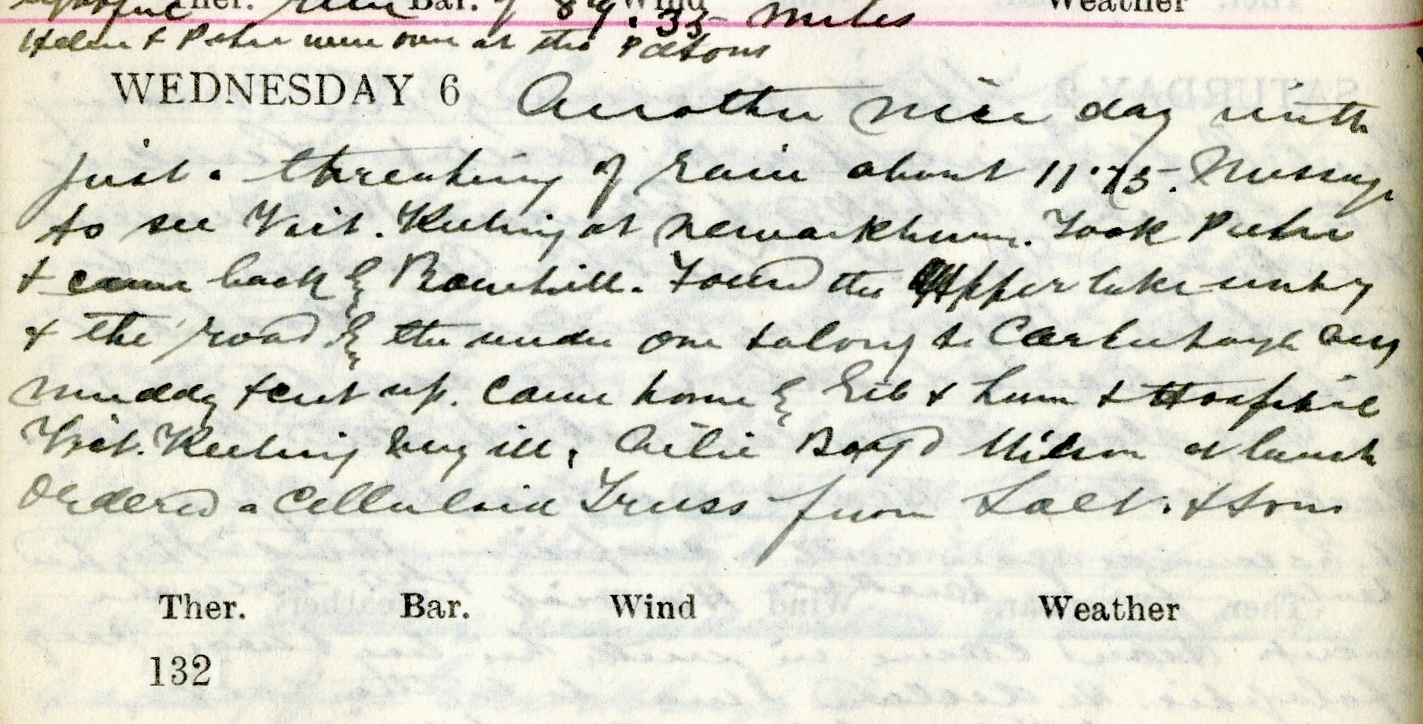 Ther. Bar. of 89.35 miles Weather
Helen & Peter were over at the Patons
WEDNESDAY 6 Another nice day with
just a threatening of rain about 11.15. Message
to see Vict. Keeling at Newarkburn. Took Peter
& came back by Bowhill. Found the Upper lake empty
& the road by the under one & along to Carterhaugh very
muddy & cut up. Came home by & Hospital
Vict. Keeling very ill. Ailie Boyd Wilson at lunch
Ordered a Celluloid Truss from Salt & Son
Ther. Bar. Wind Weather
132